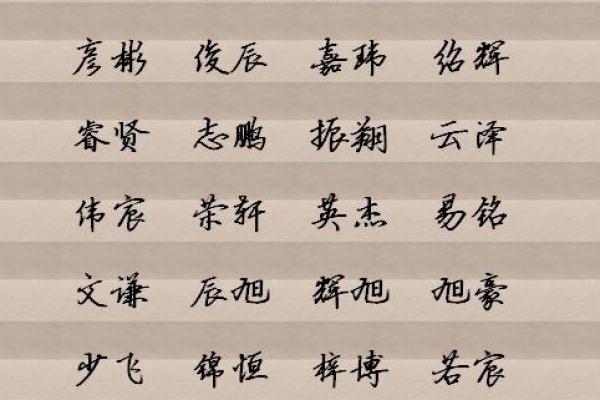 彦彬 俊辰 嘉玮 绍辉
睿贤 志鹏 振翔 云泽
伟宸 荣轩 英杰 易铭
文谦 辰旭 辉旭 旭豪
少飞 锦恒 梓博 若宸